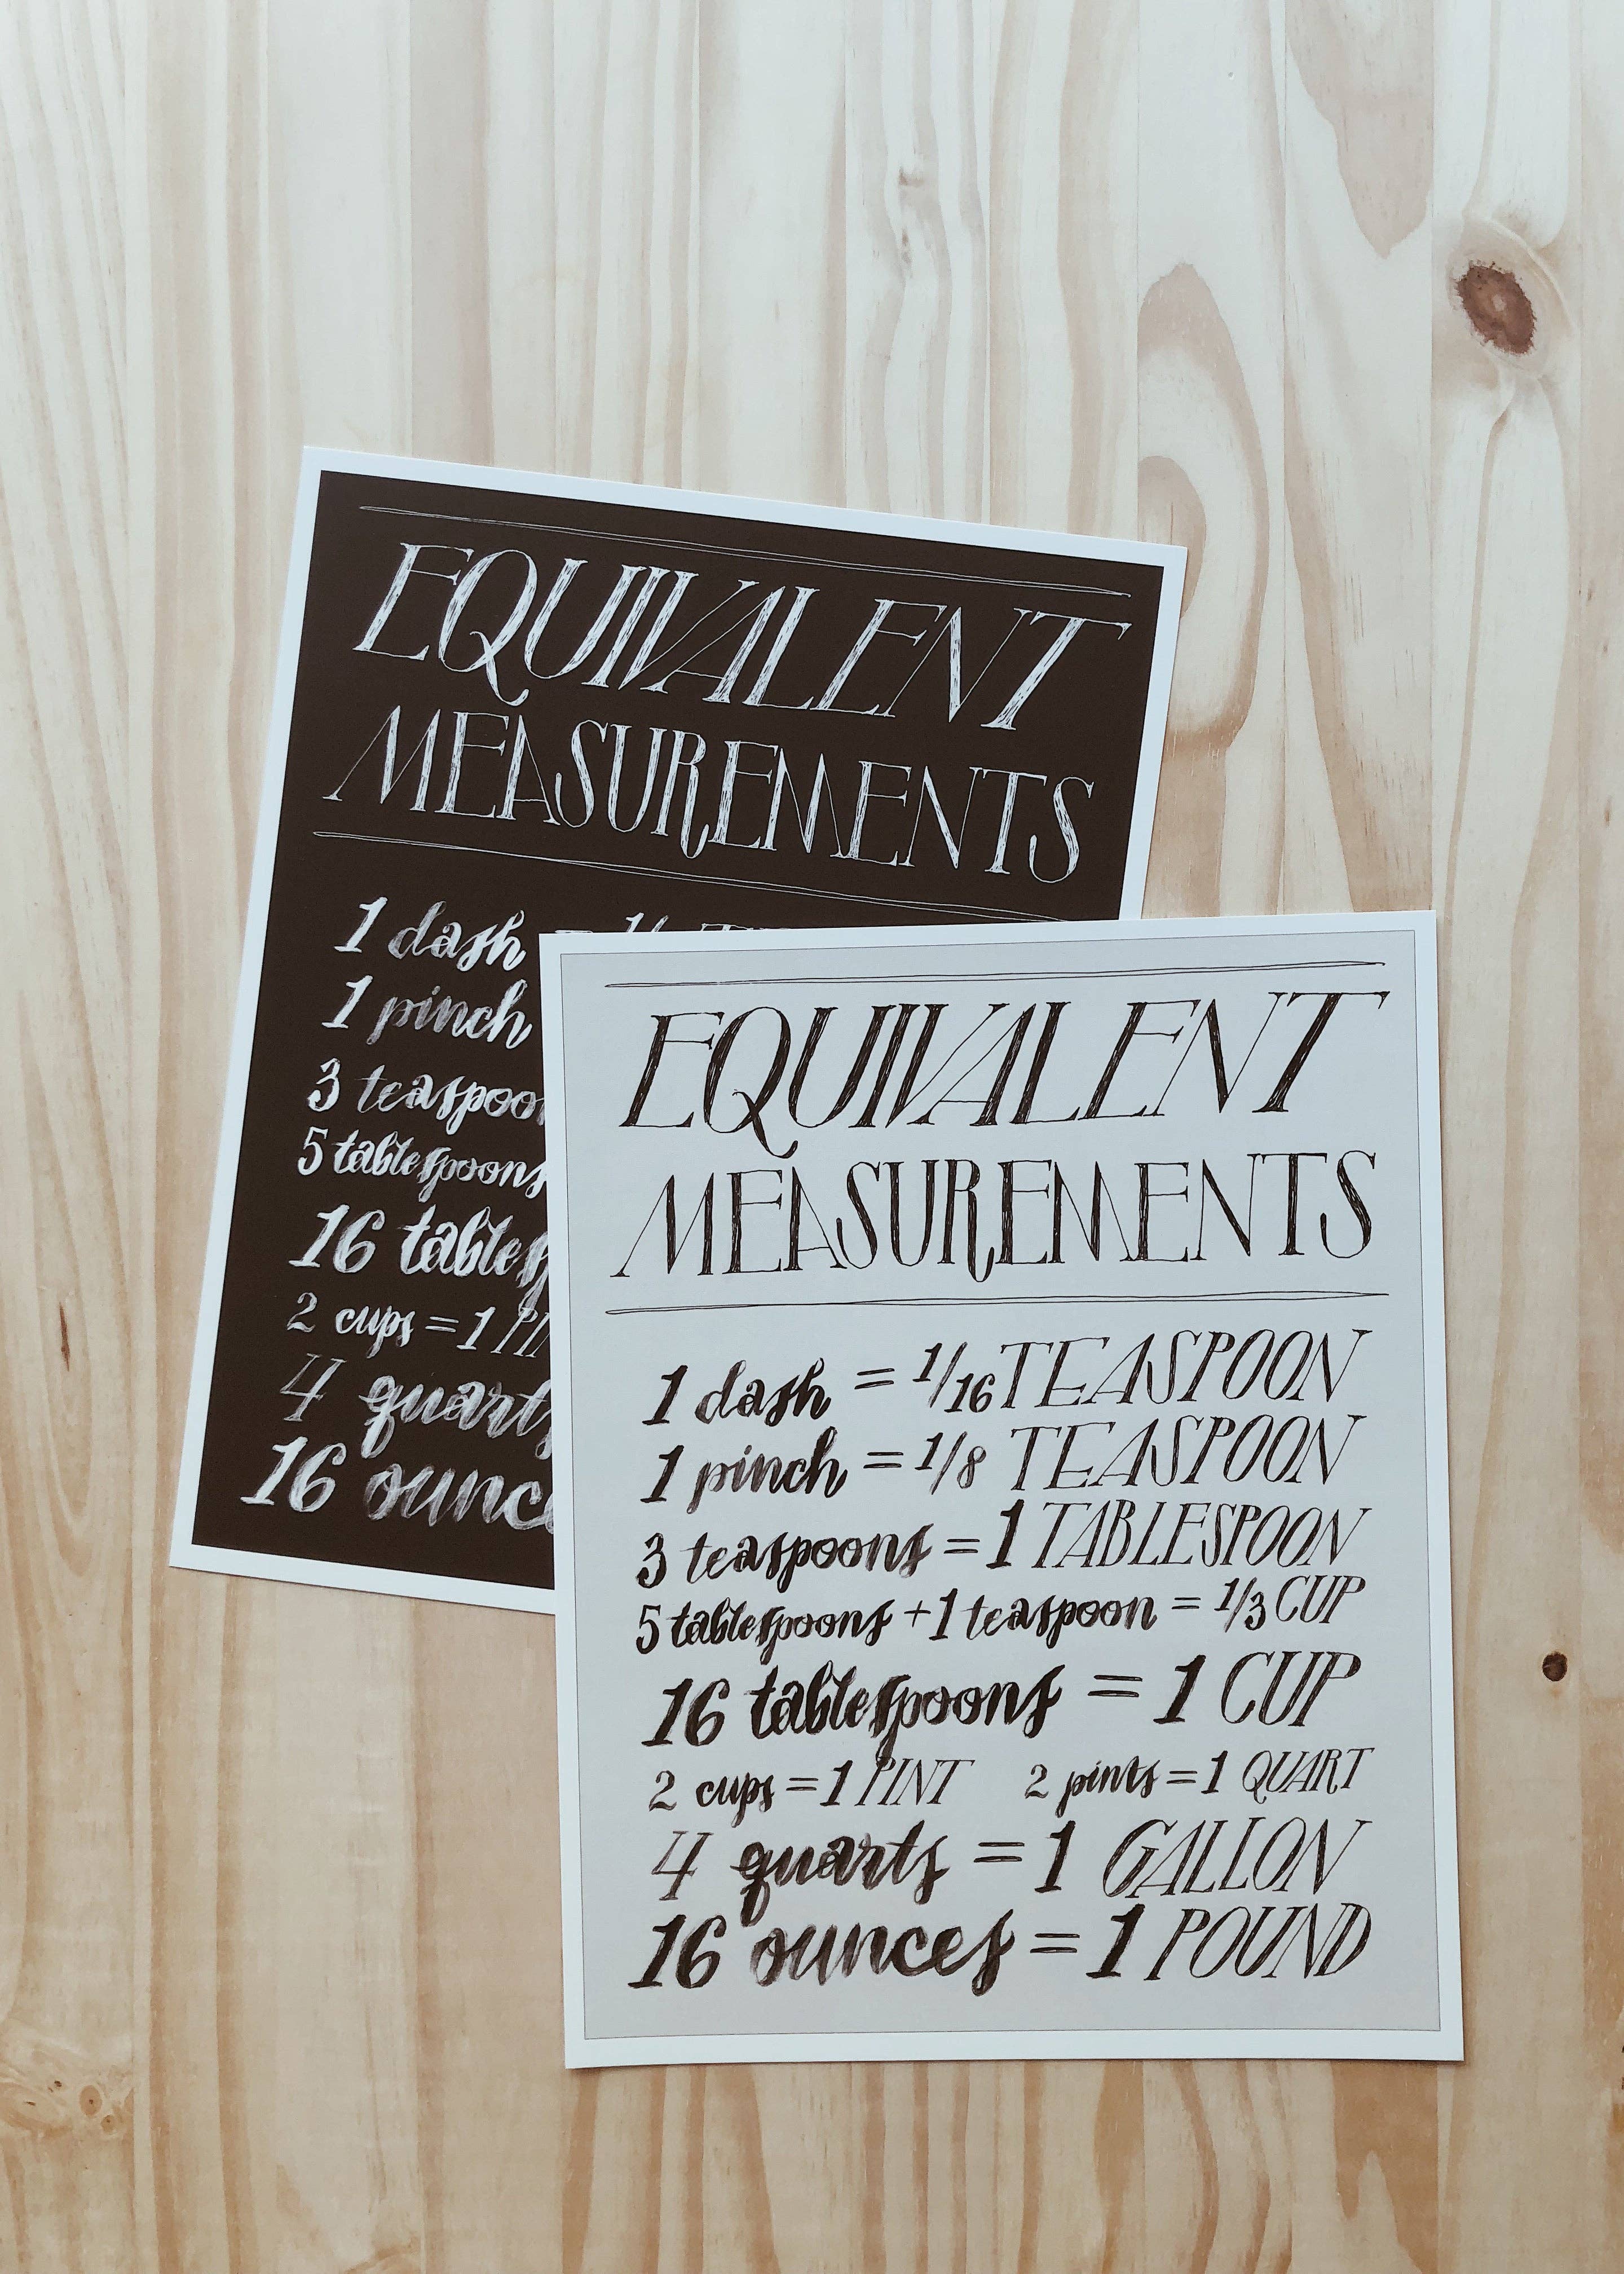 EQUIVALENT
MEASUREMENTS
1 dash
1 pinch
3
5 tablespoons
16
2 cups = 1
4
16
EQUIVALENT
MEASUREMENTS
1 dash = 1/16 TEASPOON
1 pinch = 1/8 TEASPOON
3 teaspoons = 1 TABLESPOON
5 tablespoons + 1 teaspoon = 1/3 CUP
16 tablespoons = 1 CUP
2 cups = 1 PINT 2 pints = 1 QUART
4 quarts = 1 GALLON
16 ounces = 1 POUND